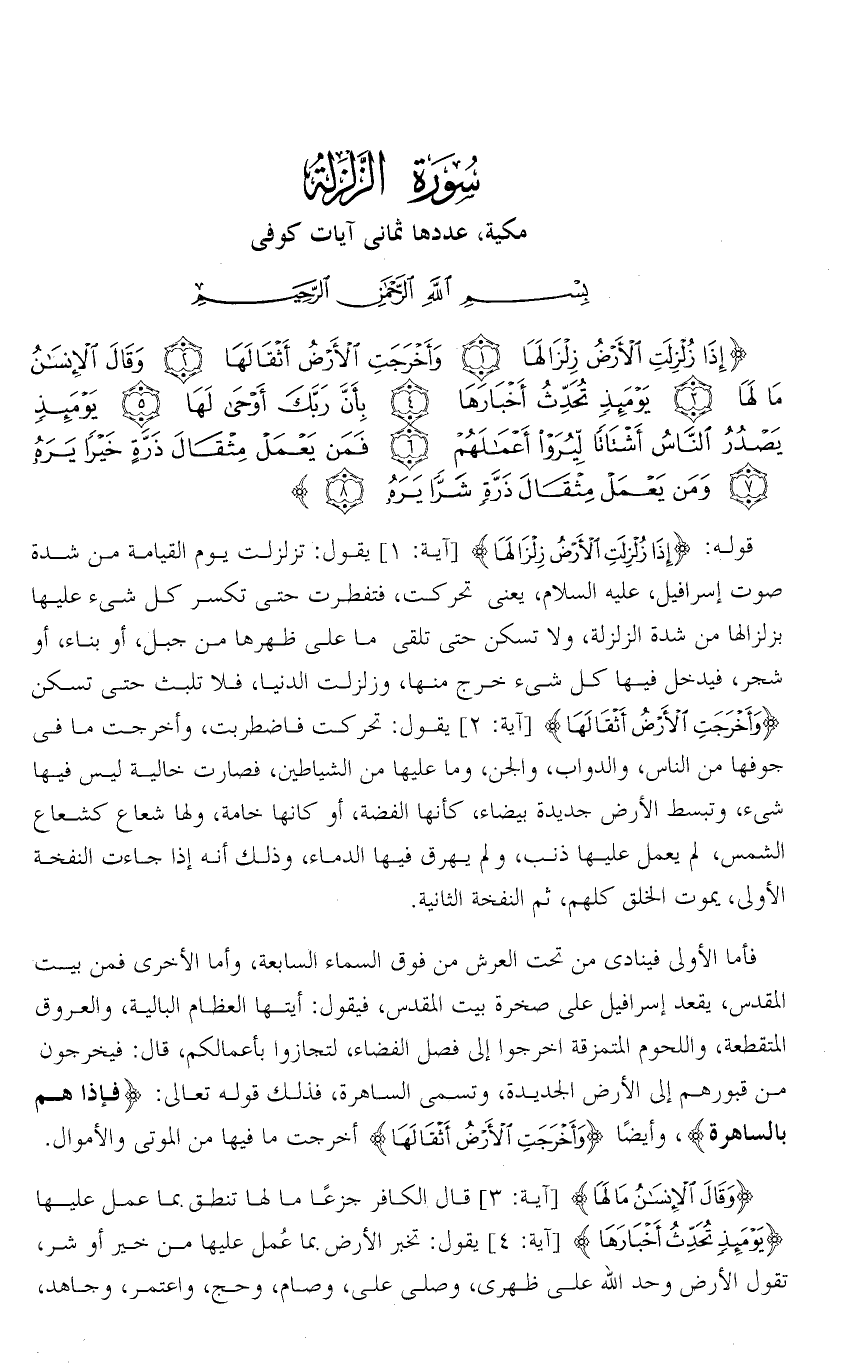 سُورَةُ الزَّلْزَلَةُ
مكية، عددها ثمانى آيات كوفى
بِسْمِ ٱللَّهِ ٱلرَّحْمَٰنِ ٱلرَّحِيمِ
﴿إِذَا زُلْزِلَتِ ٱلْأَرْضُ زِلْزَالَهَا ١ وَأَخْرَجَتِ ٱلْأَرْضُ أَثْقَالَهَا ٢ وَقَالَ ٱلْإِنسَٰنُ
مَا لَهَا ٣ يَوْمَئِذٍ تُحَدِّثُ أَخْبَارَهَا ٤ بِأَنَّ رَبَّكَ أَوْحَىٰ لَهَا ٥ يَوْمَئِذٍ
يَصْدُرُ ٱلنَّاسُ أَشْتَاتًا لِّيُرَوْا۟ أَعْمَٰلَهُمْ ٦ فَمَن يَعْمَلْ مِثْقَالَ ذَرَّةٍ خَيْرًا يَرَهُۥ
٧ وَمَن يَعْمَلْ مِثْقَالَ ذَرَّةٍ شَرًّا يَرَهُۥ ٨ ﴾
قوله: ﴿إِذَا زُلْزِلَتِ ٱلْأَرْضُ زِلْزَالَهَا﴾ [آية: ١] يقول: تزلزلت يوم القيامة من شدة
صوت إسرافيل، عليه السلام، يعنى تحركت، فتفطرت حتى تكسر كل شىء عليها
بزلزالها من شدة الزلزلة، ولا تسكن حتى تلقى ما على ظهرها من جبل، أو بناء، أو
شجر، فيدخل فيها كل شىء خرج منها، وزلزلت الدنيا، فلا تلبث حتى تسكن
﴿وَأَخْرَجَتِ ٱلْأَرْضُ أَثْقَالَهَا﴾ [آية: ٢] يقول: تحركت فاضطربت، وأخرجت ما فى
جوفها من الناس، والدواب، والجن، وما عليها من الشياطين، فصارت خالية ليس فيها
شىء، وتبسط الأرض جديدة بيضاء، كأنها الفضة، أو كانها خامة، ولها شعاع كشعاع
الشمس، لم يعمل عليها ذنب، ولم يهرق فيها الدماء، وذلك أنه إذا جاءت النفخة
الأولى، يموت الخلق كلهم، ثم النفخة الثانية.
فأما الأولى فينادى من تحت العرش من فوق السماء السابعة، وأما الأخرى فمن بيت
المقدس، يقعد إسرافيل على صخرة بيت المقدس، فيقول: أيتها العظام البالية، والعروق
المتقطعة، واللحوم المتمزقة اخرجوا إلى فصل الفضاء، لتجازوا بأعمالكم، قال: فيخرجون
من قبورهم إلى الأرض الجديدة، وتسمى الساهرة، فذلك قوله تعالى: ﴿فإذا هم
بالساهرة﴾، وأيضًا ﴿وَأَخْرَجَتِ ٱلْأَرْضُ أَثْقَالَهَا﴾ أخرجت ما فيها من الموتى والأموال.
﴿وَقَالَ ٱلْإِنسَٰنُ مَا لَهَا﴾ [آية: ٣] قال الكافر جزعًا ما لها تنطق بما عمل عليها
﴿يَوْمَئِذٍ تُحَدِّثُ أَخْبَارَهَا﴾ [آية: ٤] يقول: تخبر الأرض بما عُمل عليها من خير أو شر،
تقول الأرض وحد الله على ظهرى، وصلى على، وصام، وحج، واعتمر، وجاهد،